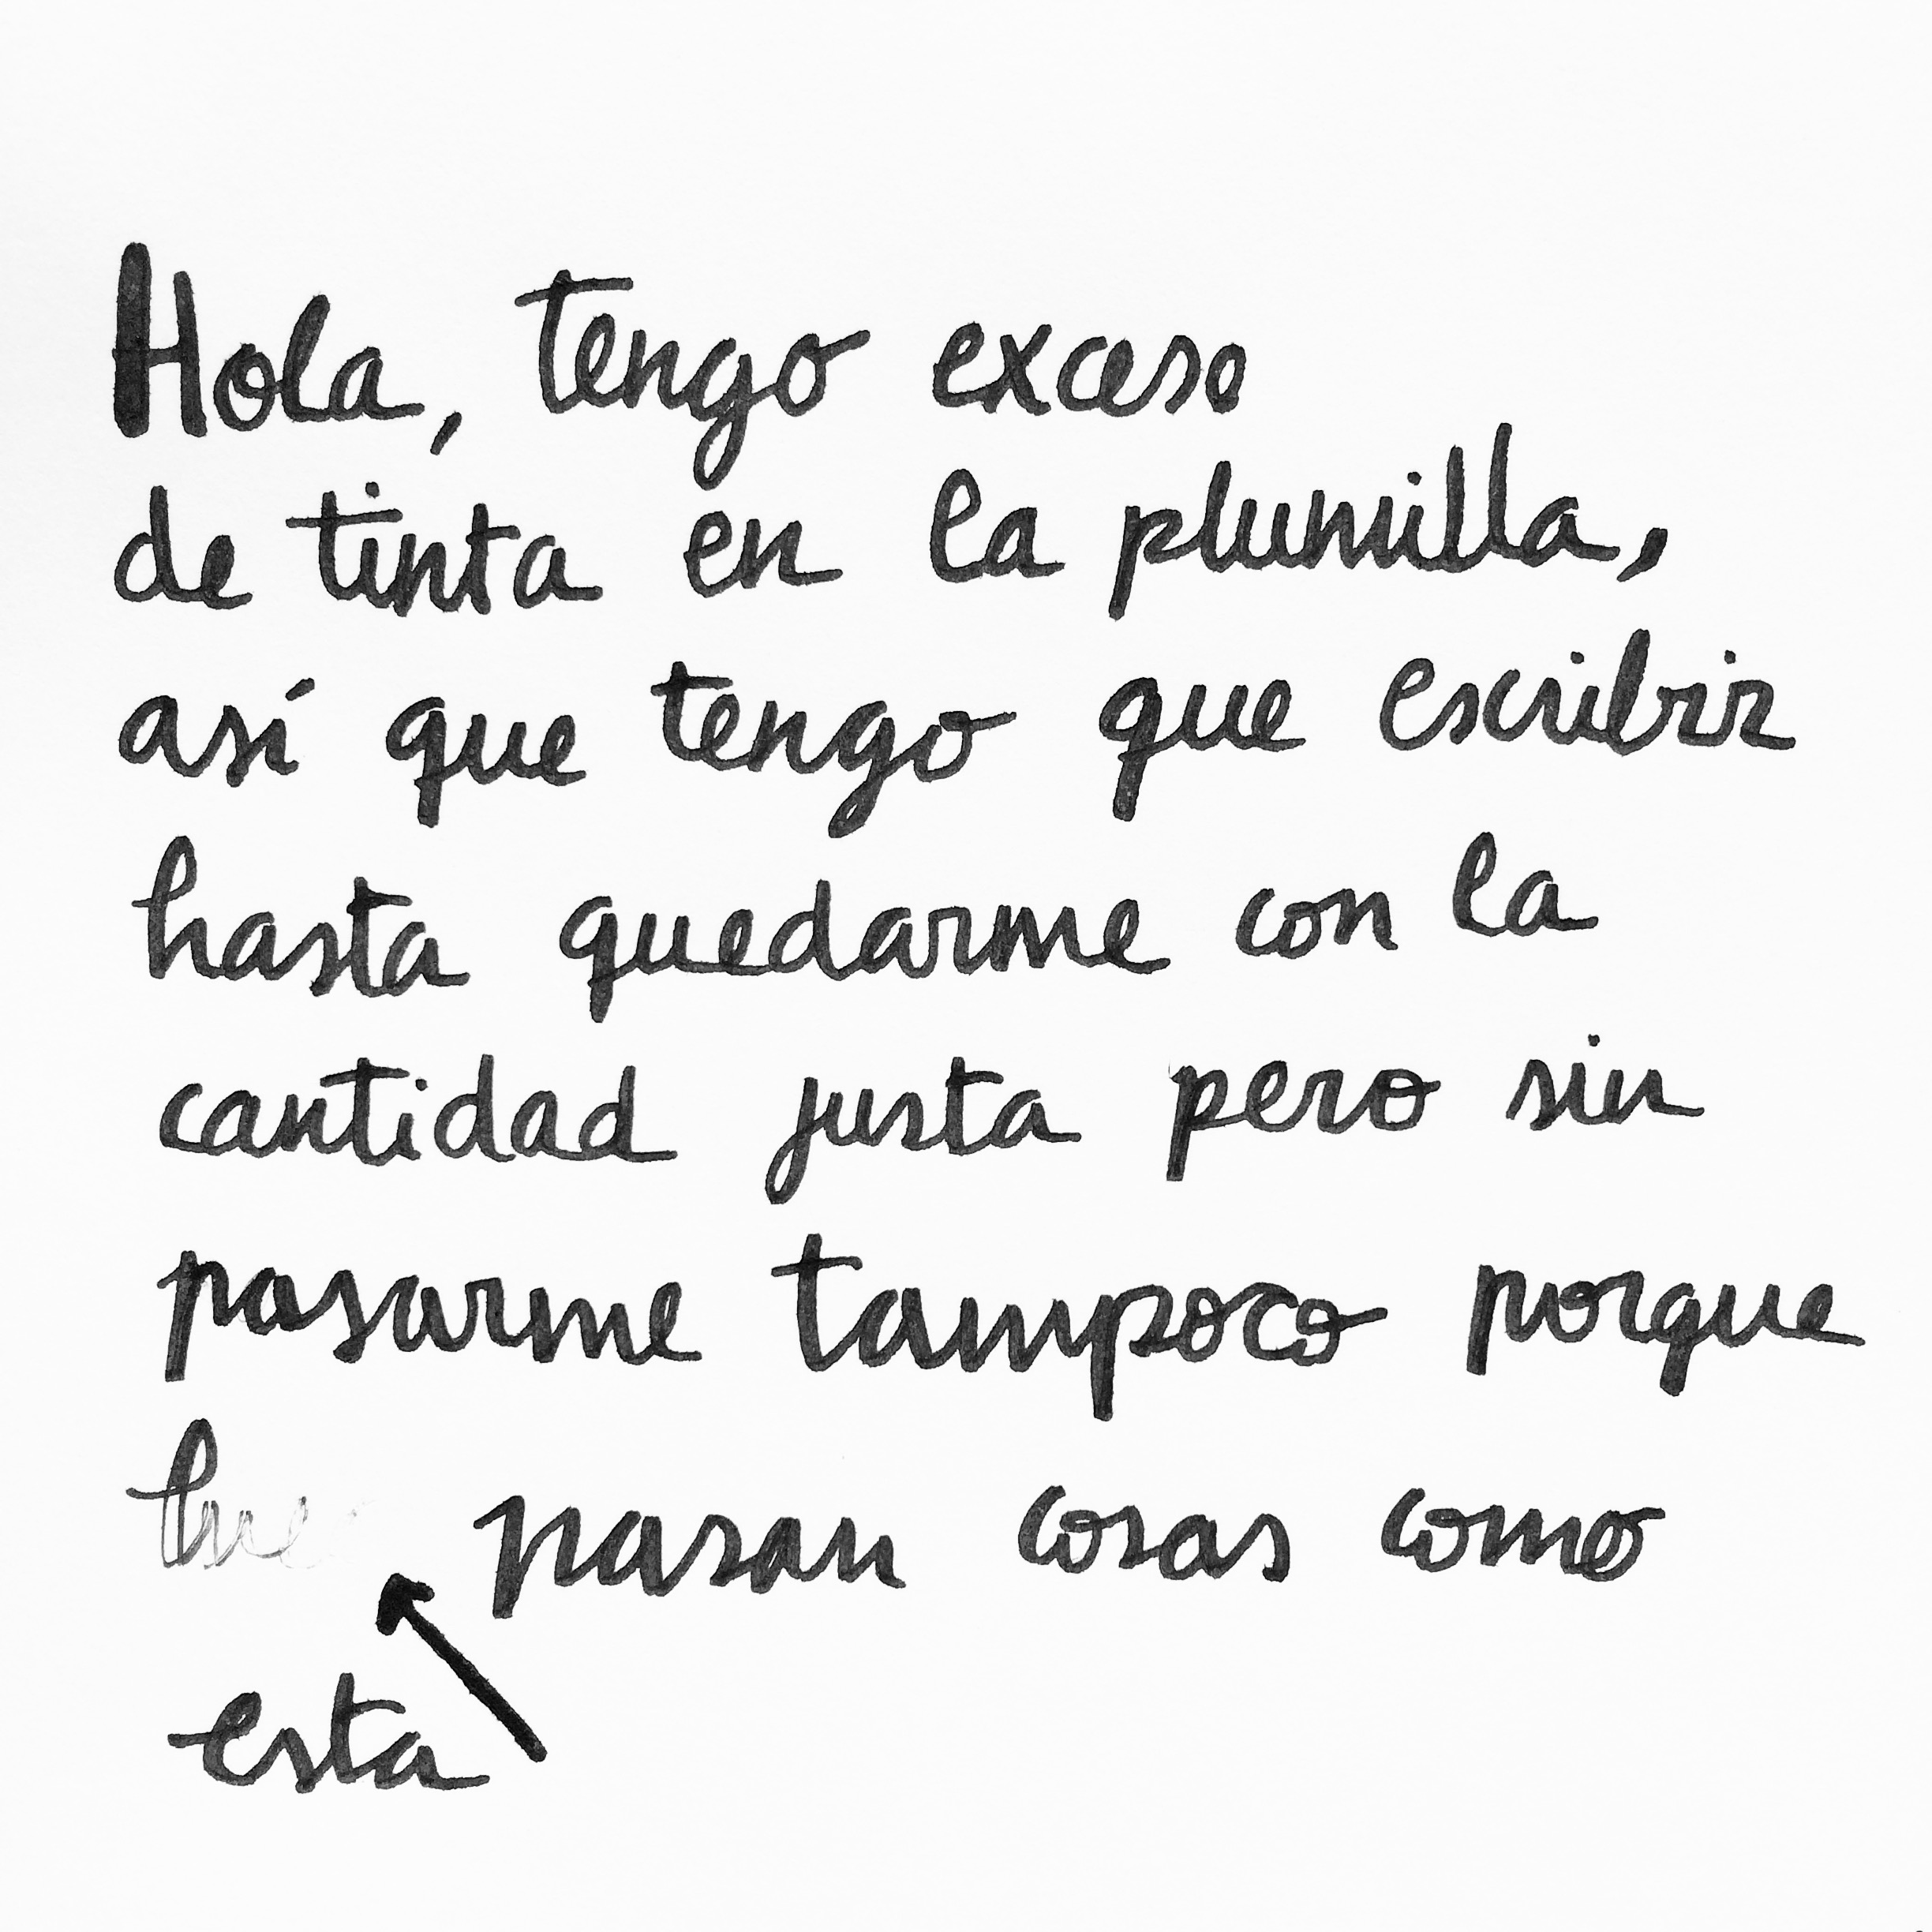 Hola, tengo exceso
de tinta en la plumilla,
así que tengo que escribir
hasta quedarme con la
cantidad justa pero sin
pasarme tampoco porque
pasan cosas como
esta